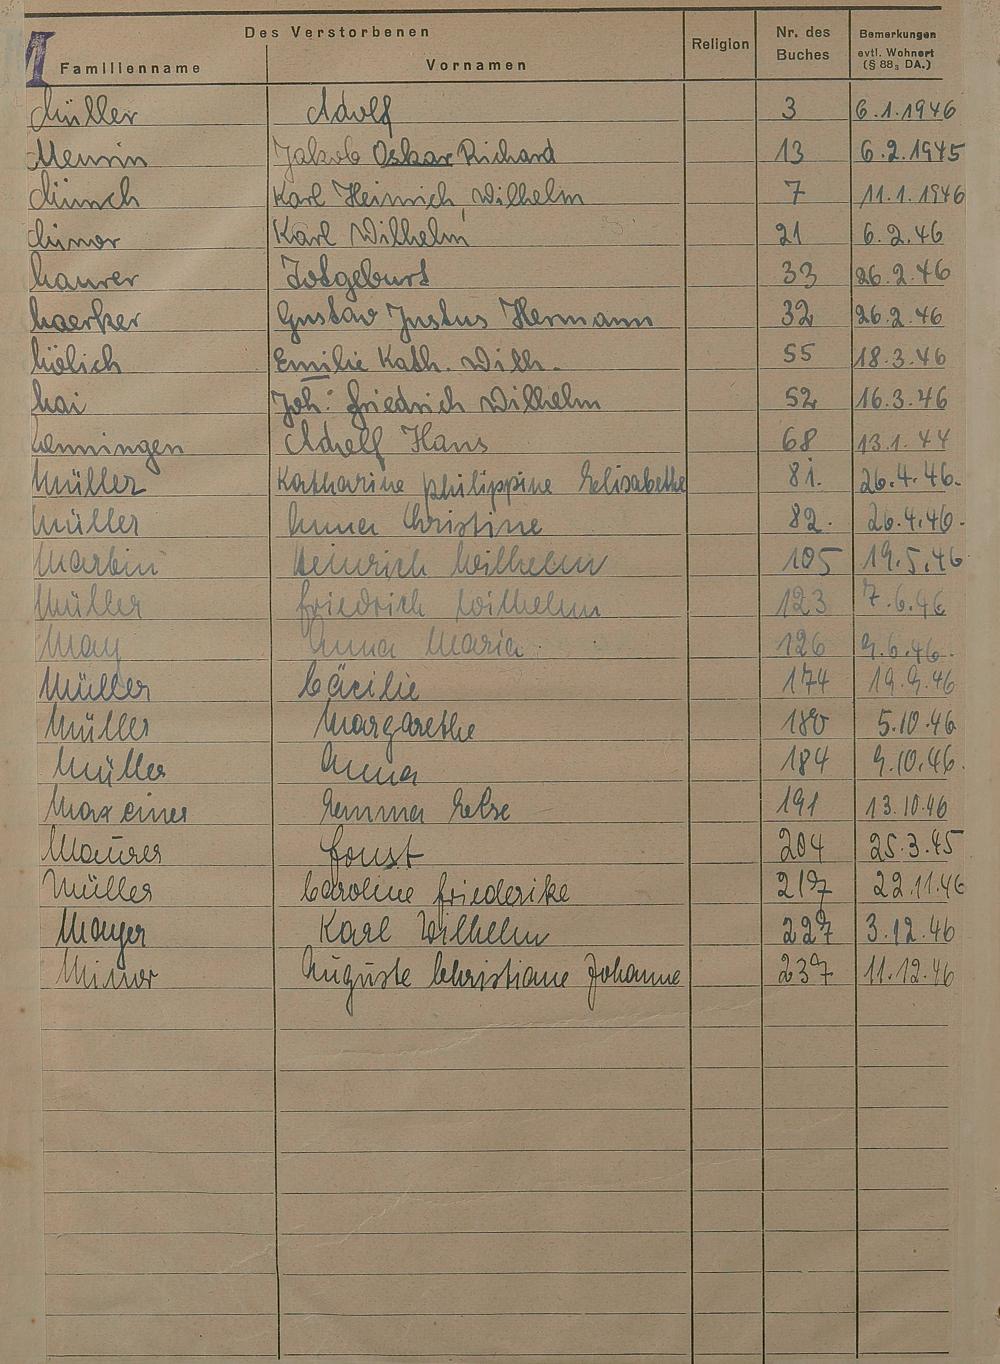 M
Des Verstorbenen
Familienname Vornamen Religion Nr. des Buches Bemerkungen evtl. Wohnort (§ 88₃ DA.)
Müller Adolf 3 6.1.1946
Jakob Oskar Richard 13 6.2.1945
Münch Karl Heinrich Wilhelm 7 11.1.1946
Minor Karl Wilhelm 21 6.2.46
Maurer Totgeburt 33 26.2.46
Maerker Gustav Justus Hermann 32 26.2.46
Mölich Emilie Kath. Wilh. 55 18.3.46
Mai Joh. Friedrich Wilhelm 52 16.3.46
Menningen Adolf Hans 68 13.1.44
Müller Katharine Philippine Elisabethe 81. 26.4.46.
Müller Anna Christine 82. 26.4.46.
Martin Heinrich Wilhelm 105 19.5.46
Müller Friedrich Wilhelm 123 7.6.46
May Anna Maria 126 9.6.46.
Müller Cäcilie 174 19.9.46
Müller Margarethe 180 5.10.46
Müller Anna 184 9.10.46.
Maxeiner Emma Else 191 13.10.46
Maurer 204 25.3.45
Müller Caroline Friederike 217 22.11.46
Mayer Karl Wilhelm 227 3.12.46
Minor Auguste Christiane Johanne 237 11.12.46